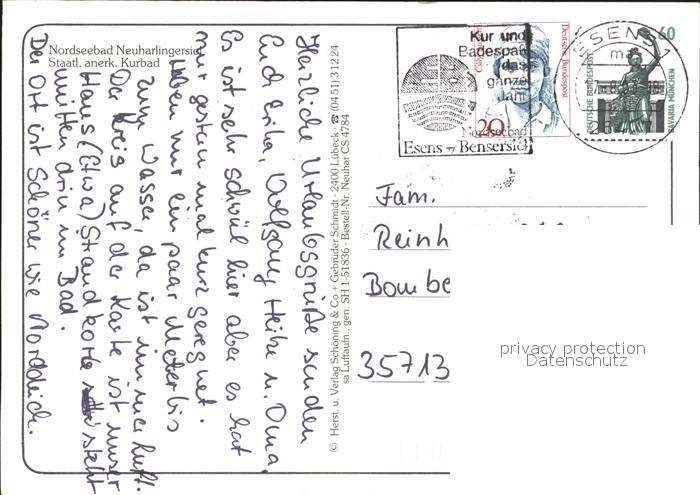 Nordseebad Neuharlingersiel
Staatl. anerk. Kurbad
Herzliche Urlaubsgrüße senden
Euch Erika, Wolfgang, Heike u. Oma.
Es ist sehr schwül hier aber es hat
nur gestern mal kurz geregnet.
Haben nur ein paar Meter bis
zum Wasser, da ist immer Luft.
Der Kreis auf der Karte ist unser
Haus (Etwa) Strandkorb steht
mitten drin im Bad.
Der Ort ist Schöner wie Norddeich.
© Herst. u. Verlag Schöning & Co + Gebrüder Schmidt · 2400 Lübeck · ☎ (0451) 31224
sa Luftaufn., gen. SH 1-51836 · Bestell-Nr. Neuhar CS 4784
Kur und
Badespaß
das
ganze
Jahr
Nordseebad
Esens - Bensersiel
Deutsche Bundespost
20
ESENS 1
60
DEUTSCHE BUNDESPOST
BAVARIA MÜNCHEN
Fam.
Reinh
Bombe
35713
privacy protection
Datenschutz